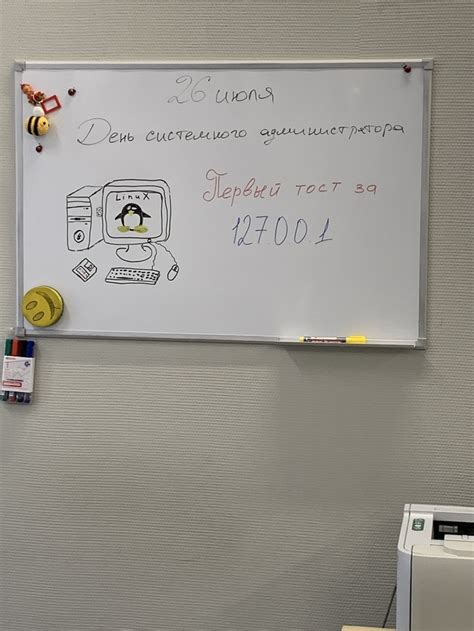 26 июля
День системного администратора
Linux
Первый тост за
127.0.0.1